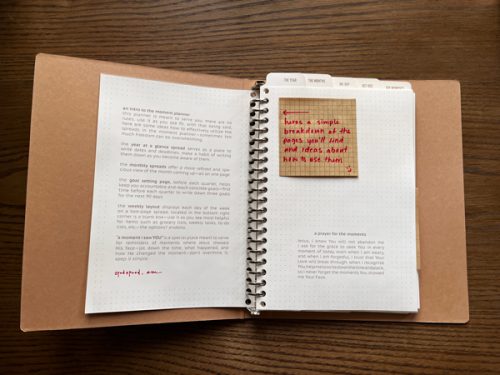 an intro to the moment planner
this planner is meant to serve you. there are no
rules. use it as you use fit. with that being said,
here are some ideas how to effectively utilize the
spreads in the moment planner - sometimes too
much freedom can be overwhelming.
the year at a glance spread serves as a place to
write dates and deadlines. make a habit of writing
them down as you become aware of them.
the monthly spreads offer a more refined and spa-
cious view of the month coming up - all on one page
the goal setting page, before each quarter, helps
keep you accountable and reach concrete goals - find
time before each quarter to write down three goals
for the next 90 days.
the weekly layout displays each day of the week
on a two-page spread. located in the bottom right
corner is a blank box - use it as you see most helpful
for items such as grocery lists, weekly tasks, to do
lists, etc. - the options? endless
"a moment i saw YOU" is a special place meant to serve
for reminders of moments where Jesus showed
His face - jot down the time, what happened, and
how He changed the moment - don't overthink it,
keep it simple.
godspeed,
THE YEAR
THE MONTHS
←
heres a simple
breakdown of the
pages you'll find
and ideas about
how to use them
a prayer for the moments
Jesus, i know You will not abandon me
i ask for the grace to see You in every
moment of today, even when i am weary,
and when i am forgetful, i trust that Your
Love will break through. when i recognize
You help me to write down the time and place,
so i never forget the moments You showed
me Your Face.